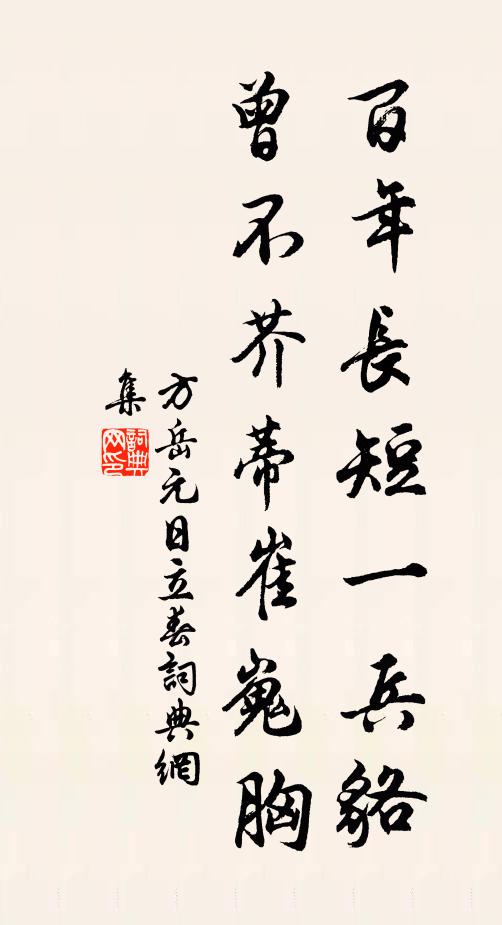 百年長短一兵貉
曾不芥蒂崔嵬胸
方岳元日立春詞典網
集
詞典
网印